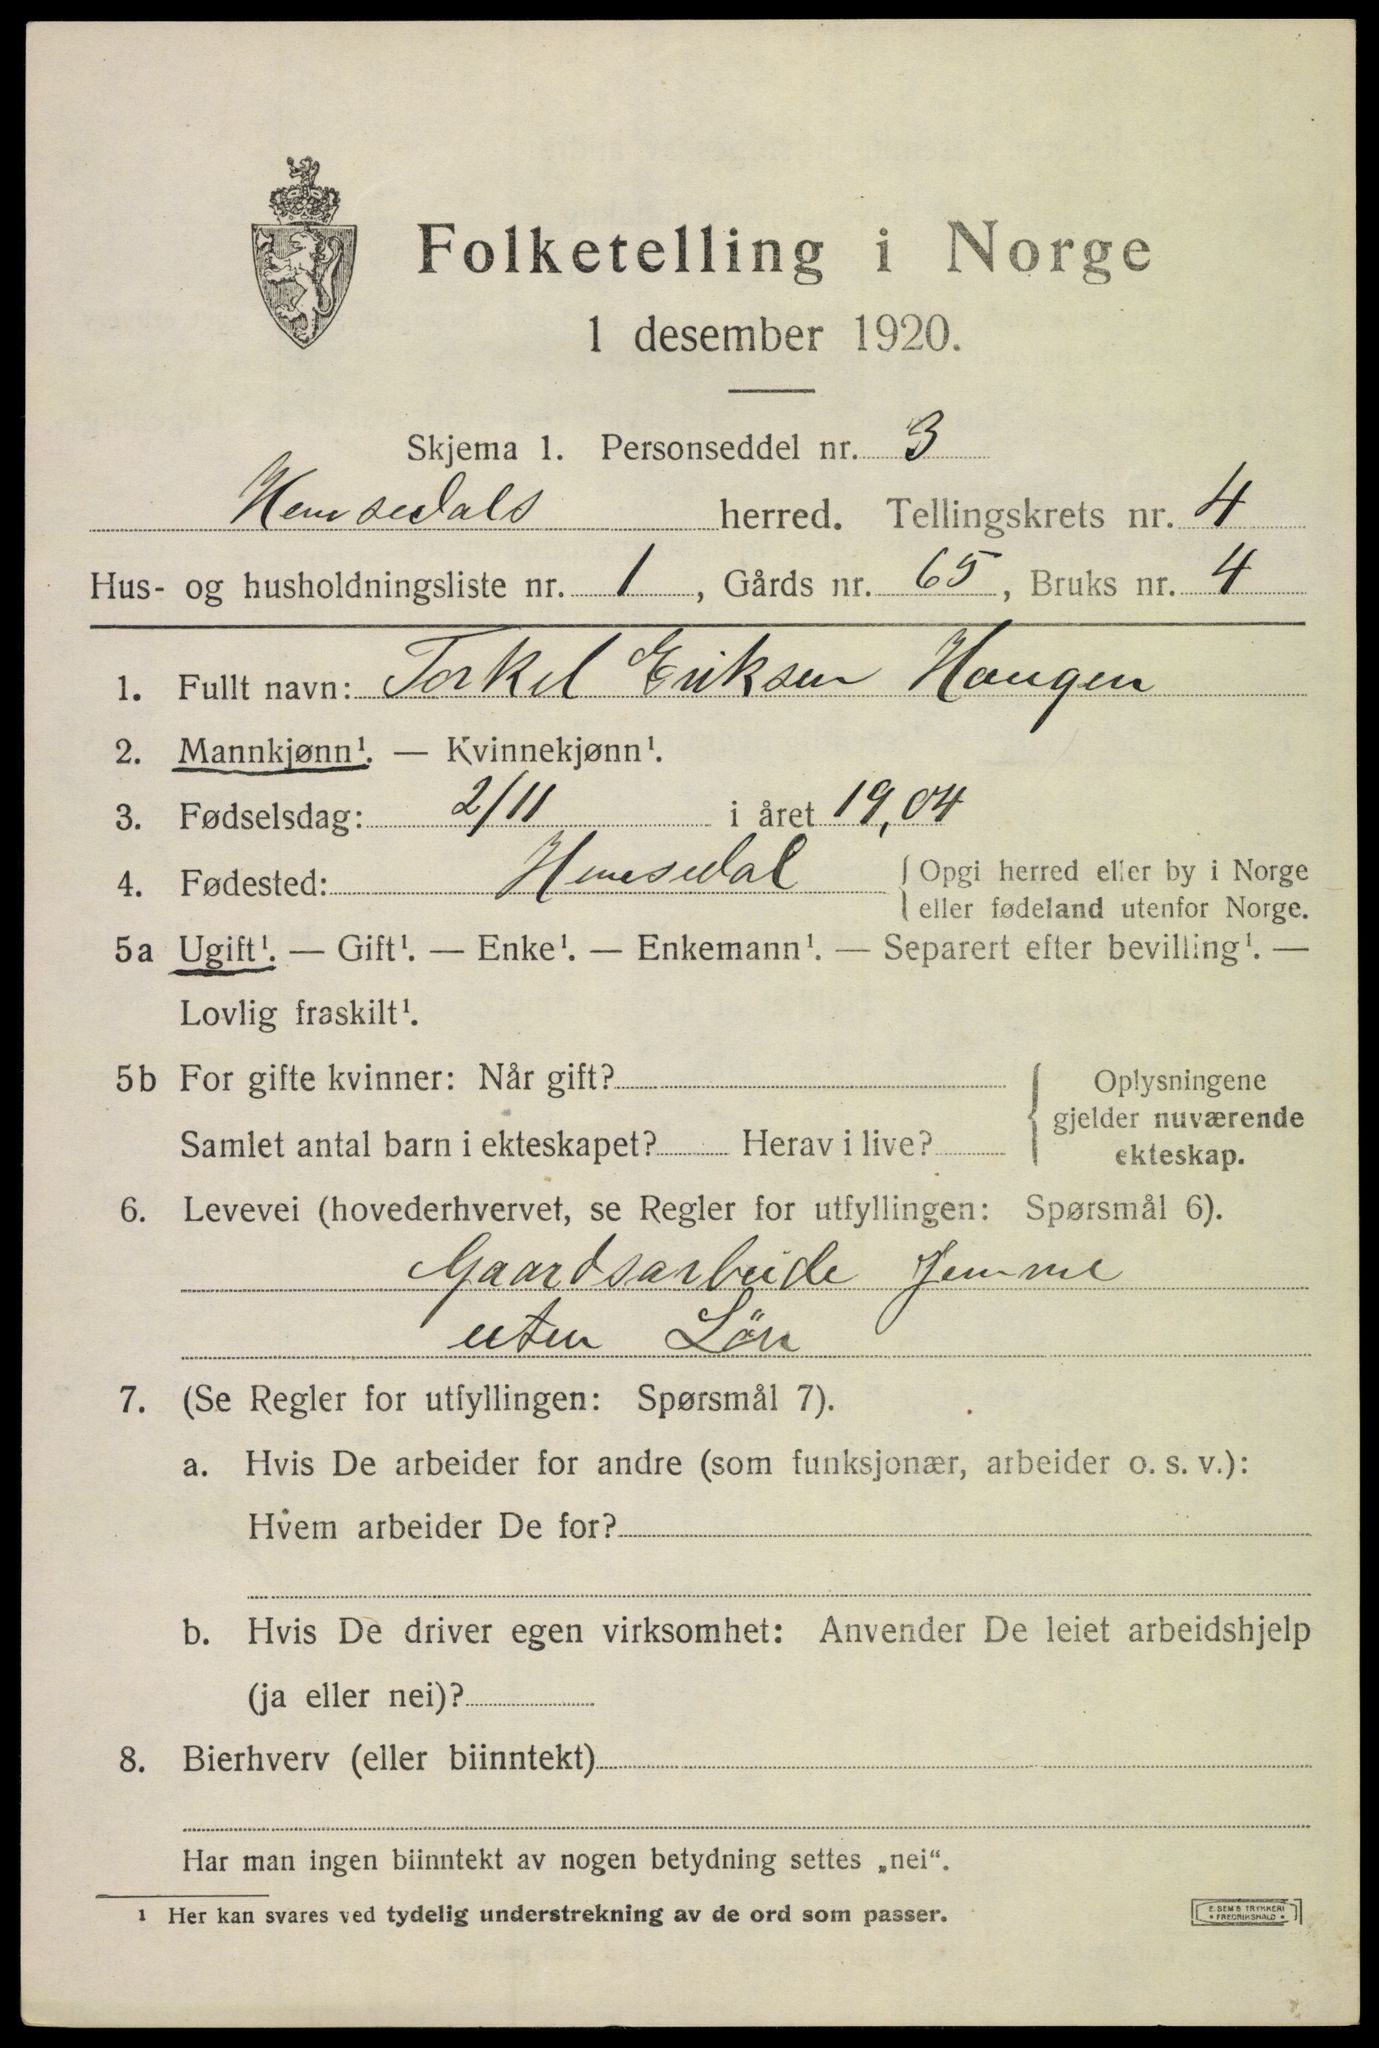 Folketelling i Norge
1 desember 1920.
Skjema 1. Personseddel nr. 3
Hemsedals herred. Tellingskrets nr. 4
Hus- og husholdningsliste nr. 1, Gårds nr. 65, Bruks nr. 4
1. Fullt navn: Torkel Eriksen Haugen
2. Mannkjønn¹. — Kvinnekjønn¹.
3. Fødselsdag: 2/11 i året 19,04
4. Fødested: Hemsedal { Opgi herred eller by i Norge
eller fødeland utenfor Norge.
5a Ugift¹. — Gift¹. — Enke¹. — Enkemann¹. — Separert efter bevilling¹. —
Lovlig fraskilt¹.
5b For gifte kvinner: Når gift? { Oplysningene
gjelder nuværende
Samlet antal barn i ekteskapet? Herav i live? ekteskap.
6. Levevei (hovederhvervet, se Regler for utfyllingen: Spørsmål 6).
Gaardsarbeide hemme
uten Lön
7. (Se Regler for utfyllingen: Spørsmål 7).
a. Hvis De arbeider for andre (som funksjonær, arbeider o. s. v.):
Hvem arbeider De for?
b. Hvis De driver egen virksomhet: Anvender De leiet arbeidshjelp
(ja eller nei)?
8. Bierhverv (eller biinntekt)
Har man ingen biinntekt av nogen betydning settes „nei“.
¹ Her kan svares ved tydelig understrekning av de ord som passer.
E. SEM'S TRYKKERI
• FREDRIKSHALD •